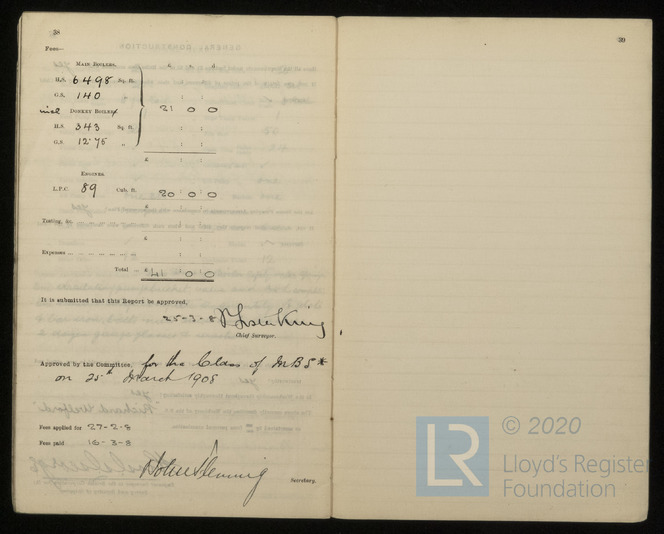 38
Fees—
MAIN BOILERS. £ s d
H.S. 6498 Sq. ft.
G.S. 140 : :
DONKEY BOILER 21 0 0
H.S. 343 Sq. ft. : :
G.S. 12.75 „ : :
£ : :
ENGINES.
L.P.C. 89 Cub. ft. 20 0 0
£ : :
Testing, &c.
£ : :
Expenses : :
Total £ 41 0 0
It is submitted that this Report be approved,
25-3-8
Chief Surveyor.
Approved by the Committee, for the Class of MBS*
on 25th March 1908
Fees applied for 27-2-8
Fees paid 16-3-8
Secretary.
39
LR
© 2020
Lloyd's Register
Foundation